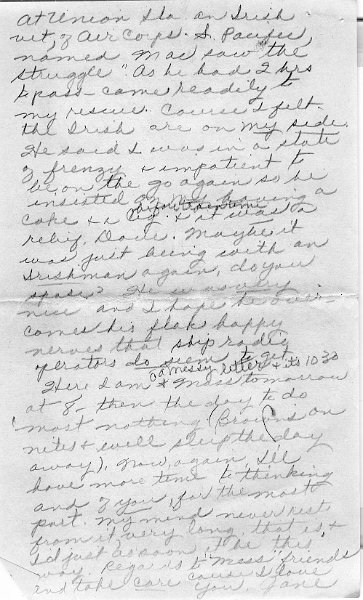 At Union Sta. an Irish
vet, of Air Corps. S. Pacific,
named Mac saw "the
struggle" As he had 2 hrs
to pass - came readily to
my rescue. Course I felt
the Irish are on my side.
He said I was in a state
of frenzy & impatient to
be on the go again so he
insisted on my having a
coke & a cig. & it was a
relief, Dave. Maybe it
was just being with an
Irishman again, do you
spose? He was very
nice and I hope he over-
comes his flak happy
nerves that ship radio
operators do seem to get
a messy letter & its 10:30
Here I am & Mass tomorrow
at 8 - then the day to do
most nothing (Browns on
nites & will sleep the day
away). Now, again I'll
have more time to thinking
and of you, for the most
part. My mind never rests
from it very long, that is, &
I'd just as soon it be this
way. Regards to "Mess" friends
and take care cause I love
you, Jane